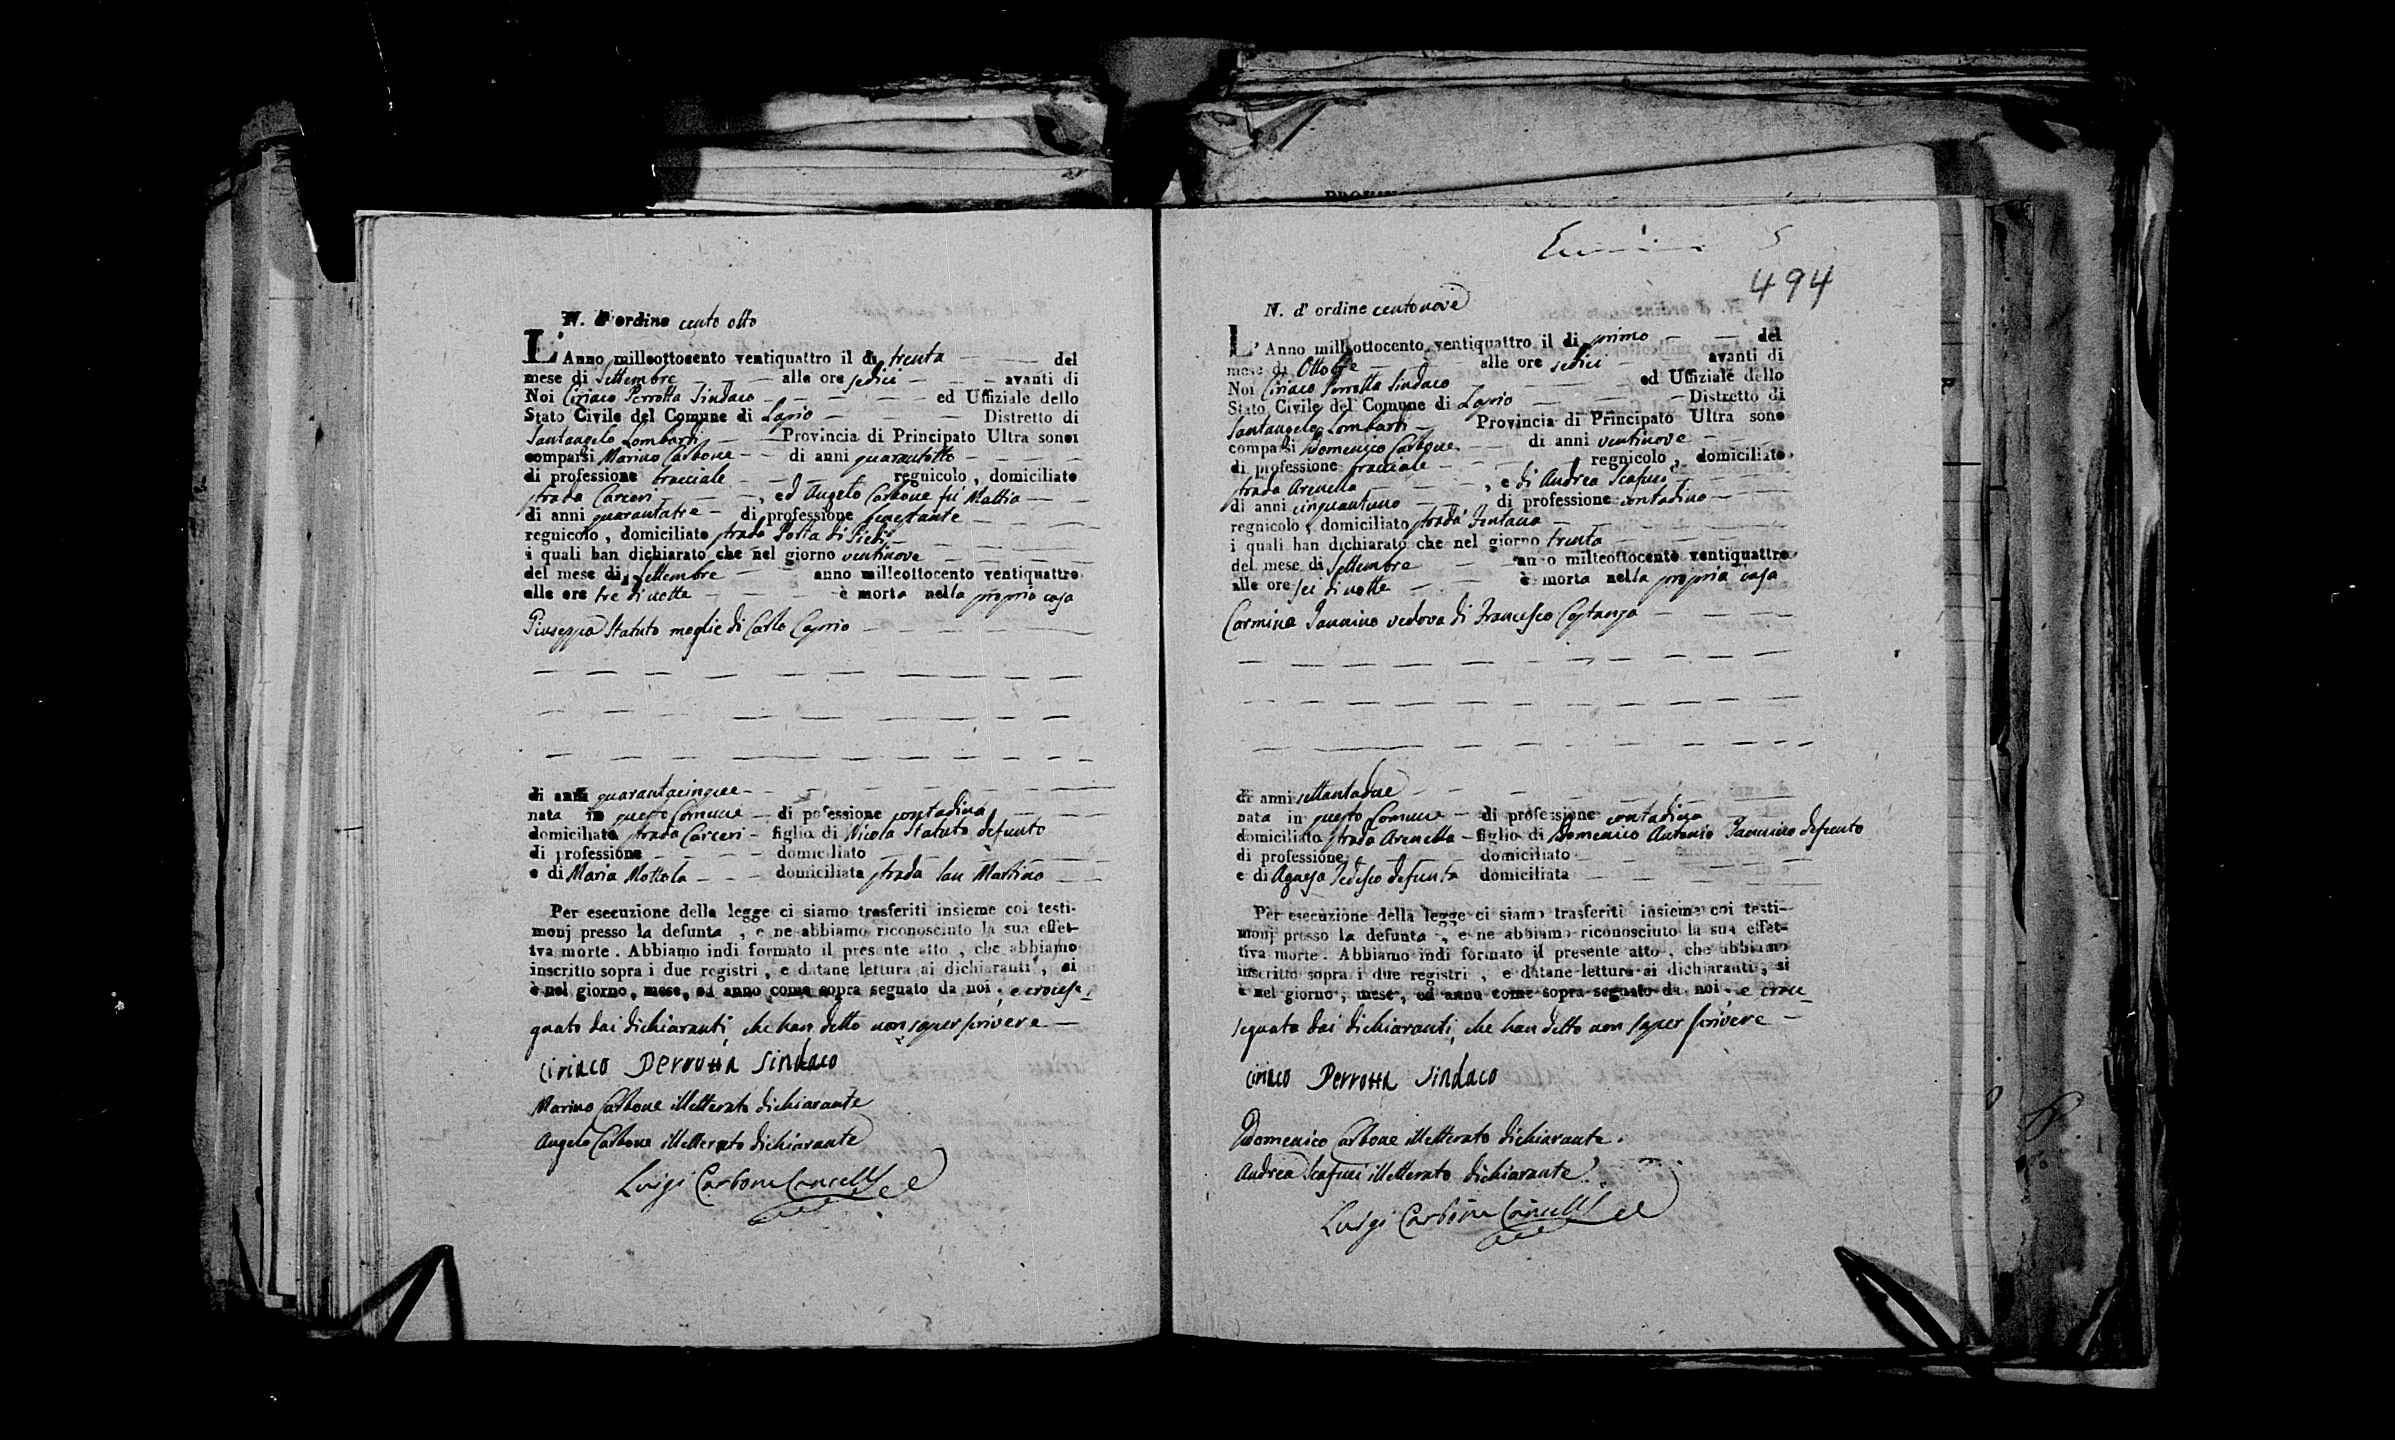 N. d'ordine cento otto
L'Anno milleottocento ventiquattro il di trenta del
mese di Settembre alle ore sedici avanti di
Noi Ciriaco Perrotta Sindaco ed Uffiziale dello
Stato Civile del Comune di Lapio Distretto di
Santangelo Lombardi Provincia di Principato Ultra sono
comparsi Marino Carbone di anni quarantotto
di professione bracciale regnicolo, domiciliato
strada Carceri, ed Angelo Carbone fu Mattia
di anni quarantatre di professione
regnicolo, domiciliato strada Porta di Piedi
i quali han dichiarato che nel giorno ventinove
del mese di Settembre anno milleottocento ventiquattro
alle ore tre di notte è morta nella propria casa
Giuseppa Statuto moglie di Carlo Caprio
di anni quarantacinque
nata in questo Comune di pofessione contadina
domiciliata strada Carceri figlia di Nicola Statuto defunto
di professione domiciliato
e di Maria Mottola domiciliata strada San Martino
Per esecuzione della legge ci siamo trasferiti insieme coi testi-
monj presso la defunta, e ne abbiamo riconosciuto la sua effet-
tiva morte. Abbiamo indi formato il presente atto, che abbiamo
inscritto sopra i due registri, e datane lettura ai dichiaranti, si
è nel giorno, mese, ed anno come sopra segnato da noi, e crocese
gnato dai dichiaranti, che han detto non saper scrivere
Ciriaco Perrotta Sindaco
Marino Carbone illetterato dichiarante
Angelo Carbone illetterato dichiarante
Luigi Carbone Cancell
494
N. d'ordine centonove
L'Anno milleottocento ventiquattro il di primo del
mese di Ottobre alle ore sedici avanti di
Noi Ciriaco Perrotta Sindaco ed Uffiziale dello
Stato Civile del Comune di Lapio Distretto di
Santangelo Lombardi Provincia di Principato Ultra sono
comparsi Domenico Carbone di anni ventinove
di professione bracciale regnicolo, domiciliato
strada Arenella, e di Andrea Scafuri
di anni cinquantuno di professione contadino
regnicolo, domiciliato strada Fontana
i quali han dichiarato che nel giorno trenta
del mese di Settembre anno milleottocento ventiquattro
alle ore sei di notte è morta nella propria casa
Carmina Iannino vedova di Francesco Costanza
di anni settantadue
nata in questo Comune di professione contadina
domiciliato strada Arenella figlio di Domenico Antonio Iannino defunto
di professione domiciliato
e di Agnesa Tedesco defunta domiciliata
Per esecuzione della legge ci siamo trasferiti insieme coi testi-
monj presso la defunta, e ne abbiamo riconosciuto la sua effet-
tiva morte. Abbiamo indi formato il presente atto, che abbiamo
inscritto sopra i due registri, e datane lettura ai dichiaranti, si
è nel giorno, mese, ed anno come sopra segnato da noi, e croce
segnato dai dichiaranti, che han detto non saper scrivere
Ciriaco Perrotta Sindaco
Domenico Carbone illetterato dichiarante.
Andrea Scafuri illetterato dichiarante
Luigi Carbone Cancell